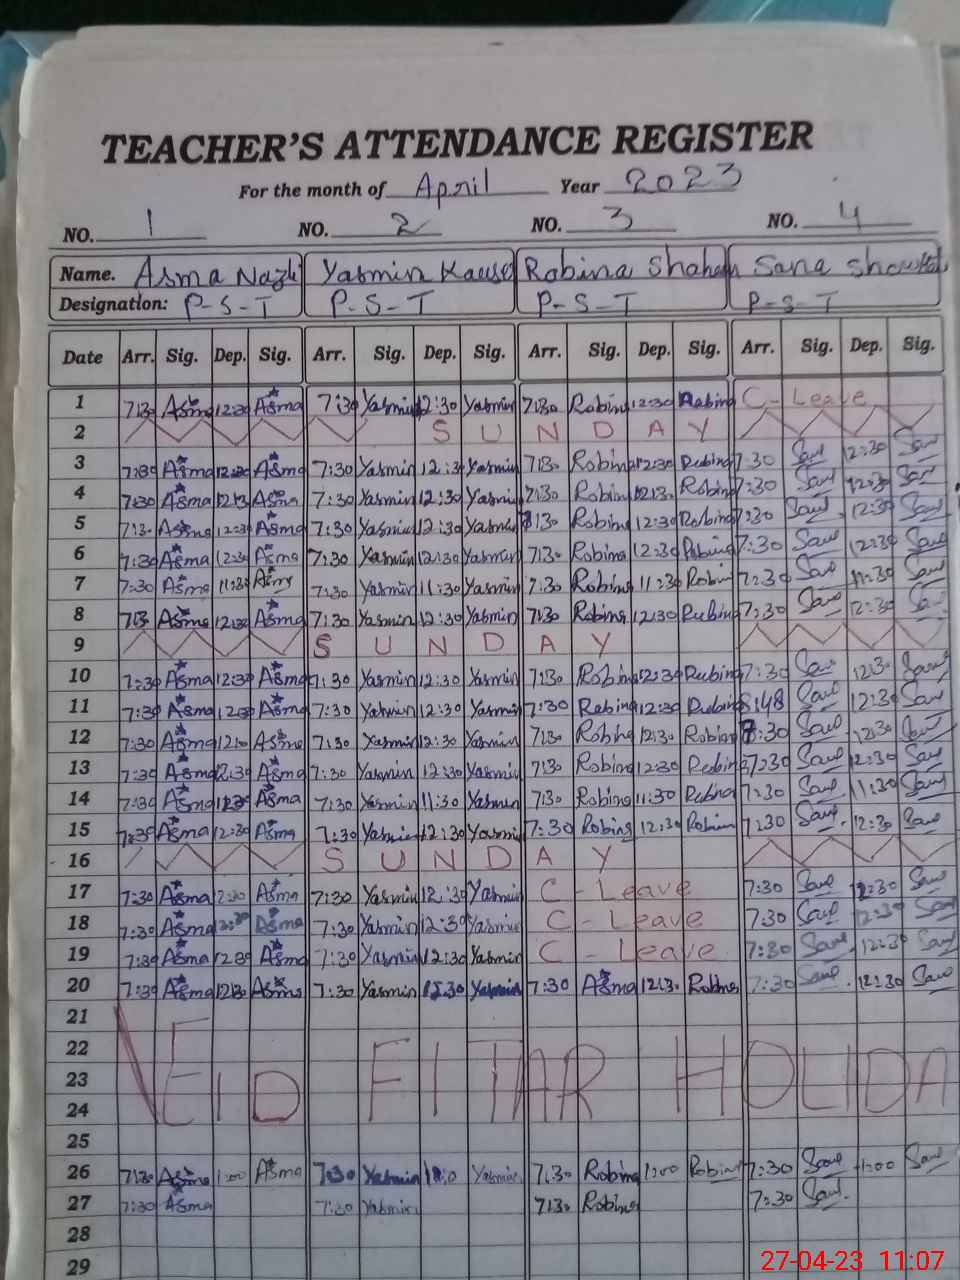 TEACHER'S ATTENDANCE REGISTER
For the month of April Year 2023
NO. 1 NO. 2 NO. 3 NO. 4
Name. Asma Yasmin Robina Sana
Designation: P-S-T P-S-T P-S-T P-S-T
Date Arr. Sig. Dep. Sig. Arr. Sig. Dep. Sig. Arr. Sig. Dep. Sig. Arr. Sig. Dep. Sig.
1 7:30 Asma 12:30 Asma 7:30 Yasmin 12:30 Yasmin 7:30 Robina 12:30 Robina C-Leave
2 SUNDAY
3 7:30 Asma 12:30 Asma 7:30 Yasmin 12:30 Yasmin 7:30 Robina 12:30 Robina 7:30 12:30
4 7:30 Asma 12:30 Asma 7:30 Yasmin 12:30 Yasmin 7:30 Robina 12:30 Robina 7:30 12:30
5 7:30 Asma 12:30 Asma 7:30 Yasmin 12:30 Yasmin 7:30 Robina 12:30 Robina 7:30 12:30
6 7:30 Asma 12:30 Asma 7:30 Yasmin 12:30 Yasmin 7:30 Robina 12:30 Robina 7:30 12:30
7 7:30 Asma 11:30 Asma 7:30 Yasmin 11:30 Yasmin 7:30 Robina 11:30 Robina 7:30 11:30
8 7:30 Asma 12:30 Asma 7:30 Yasmin 12:30 Yasmin 7:30 Robina 12:30 Robina 7:30 12:30
9 SUNDAY
10 7:30 Asma 12:30 Asma 7:30 Yasmin 12:30 Yasmin 7:30 Robina 12:30 Robina 7:30 12:30
11 7:30 Asma 12:30 Asma 7:30 Yasmin 12:30 Yasmin 7:30 Robina 12:30 Robina 12:30
12 7:30 Asma Asma 7:30 Yasmin 12:30 Yasmin 7:30 Robina 12:30 Robina 12:30
13 7:30 Asma 12:30 Asma 7:30 Yasmin 12:30 Yasmin 7:30 Robina 12:30 Robina 7:30 12:30
14 7:30 Asma Asma 7:30 Yasmin 11:30 Yasmin 7:30 Robina 11:30 Robina 7:30 11:30
15 7:30 Asma 12:30 Asma 7:30 Yasmin 12:30 Yasmin 7:30 Robina 12:30 Robina 7:30 12:30
16 SUNDAY
17 7:30 Asma Asma 7:30 Yasmin 12:30 Yasmin C-Leave 7:30 12:30
18 7:30 Asma Asma 7:30 Yasmin 12:30 Yasmin C-Leave 7:30 12:30
19 7:30 Asma 12:30 Asma 7:30 Yasmin 12:30 Yasmin C-Leave 7:30 12:30
20 7:30 Asma 12:30 Asma 7:30 Yasmin 12:30 Yasmin 7:30 Asma 12:30 Robina 7:30 12:30
21
22
EID FITAR HOLIDA
23
24
25
26 7:30 Asma 1:00 Asma 7:30 Yasmin Yasmin 7:30 Robina 1:00 Robina 7:30 1:00
27 7:30 Asma 7:30 Yasmin 7:30 Robina 7:30
28
29
27-04-23 11:07